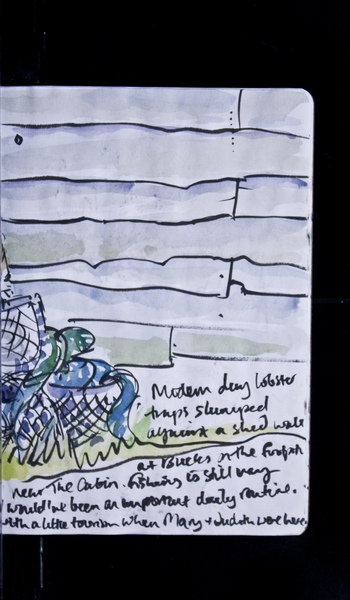 Modern day lobster
traps slumped
against a shed wall
at Bucks on the footpath
near The Cabin. Fishing is still very
would've been an important daily routine.
with a little tourism when Mary + Judith were here.